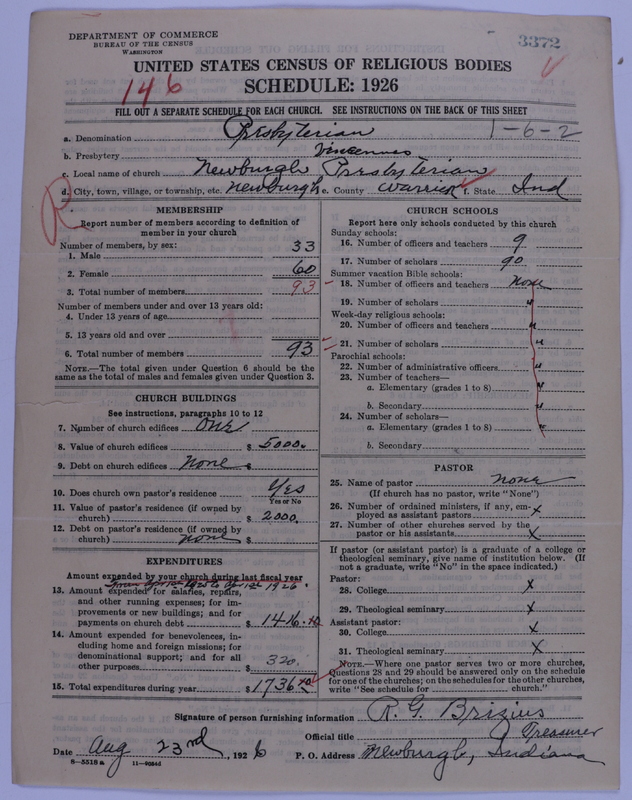 DEPARTMENT OF COMMERCE
BUREAU OF THE CENSUS
WASHINGTON
3372
UNITED STATES CENSUS OF RELIGIOUS BODIES
SCHEDULE: 1926
146
FILL OUT A SEPARATE SCHEDULE FOR EACH CHURCH. SEE INSTRUCTIONS ON THE BACK OF THIS SHEET
a. Denomination Presbyterian 1-6-2
b. Presbytery Vincennes
c. Local name of church Newburgh Presbyterian
d. City, town, village, or township, etc. Newburgh e. County Warrick f. State Ind
R
MEMBERSHIP
Report number of members according to definition of
member in your church
Number of members, by sex:
1. Male 33
2. Female 60
3. Total number of members 93
Number of members under and over 13 years old:
4. Under 13 years of age
5. 13 years old and over
6. Total number of members 93
NOTE.—The total given under Question 6 should be
same as the total of males and females given under Question 3.
CHURCH BUILDINGS
See instructions, paragraphs 10 to 12
7. Number of church edifices One
8. Value of church edifices $ 5000.
9. Debt on church edifices None $
10. Does church own pastor's residence Yes
Yes or No
11. Value of pastor's residence (if owned by
church) $ 2000.
12. Debt on pastor's residence (if owned by
church) None $
EXPENDITURES
Amount expended by your church during last fiscal year
13. Amount expended for salaries, repairs,
and other running expenses; for im-
provements or new buildings; and for
payments on church debt $ 1416.40
14. Amount expended for benevolences, in-
cluding home and foreign missions; for
denominational support; and for all
other purposes $ 320.
15. Total expenditures during year $ 1736.40
CHURCH SCHOOLS
Report here only schools conducted by this church
Sunday schools:
16. Number of officers and teachers 9
17. Number of scholars 90
Summer vacation Bible schools:
18. Number of officers and teachers None
19. Number of scholars "
Week-day religious schools:
20. Number of officers and teachers "
21. Number of scholars "
Parochial schools:
22. Number of administrative officers "
23. Number of teachers—
a. Elementary (grades 1 to 8) "
b. Secondary "
24. Number of scholars—
a. Elementary (grades 1 to 8) "
b. Secondary
PASTOR
25. Name of pastor None
(If church has no pastor, write "None")
26. Number of ordained ministers, if any, em-
ployed as assistant pastors x
27. Number of other churches served by the
pastor or his assistants x
If pastor (or assistant pastor) is a graduate of a college or
theological seminary, give name of institution below. (If
not a graduate, write "No" in the space indicated.)
Pastor:
28. College x
29. Theological seminary x
Assistant pastor:
30. College x
31. Theological seminary x
NOTE.—Where one pastor serves two or more churches,
Questions 28 and 29 should be answered only on the schedule
for one of the churches; on the schedules for the other churches,
write "See schedule for church."
Signature of person furnishing information R. G. Brizius
Official title Treasurer
Date Aug 23rd, 1926 P. O. Address Newburgh, Indiana
8-5518a 11-9684d